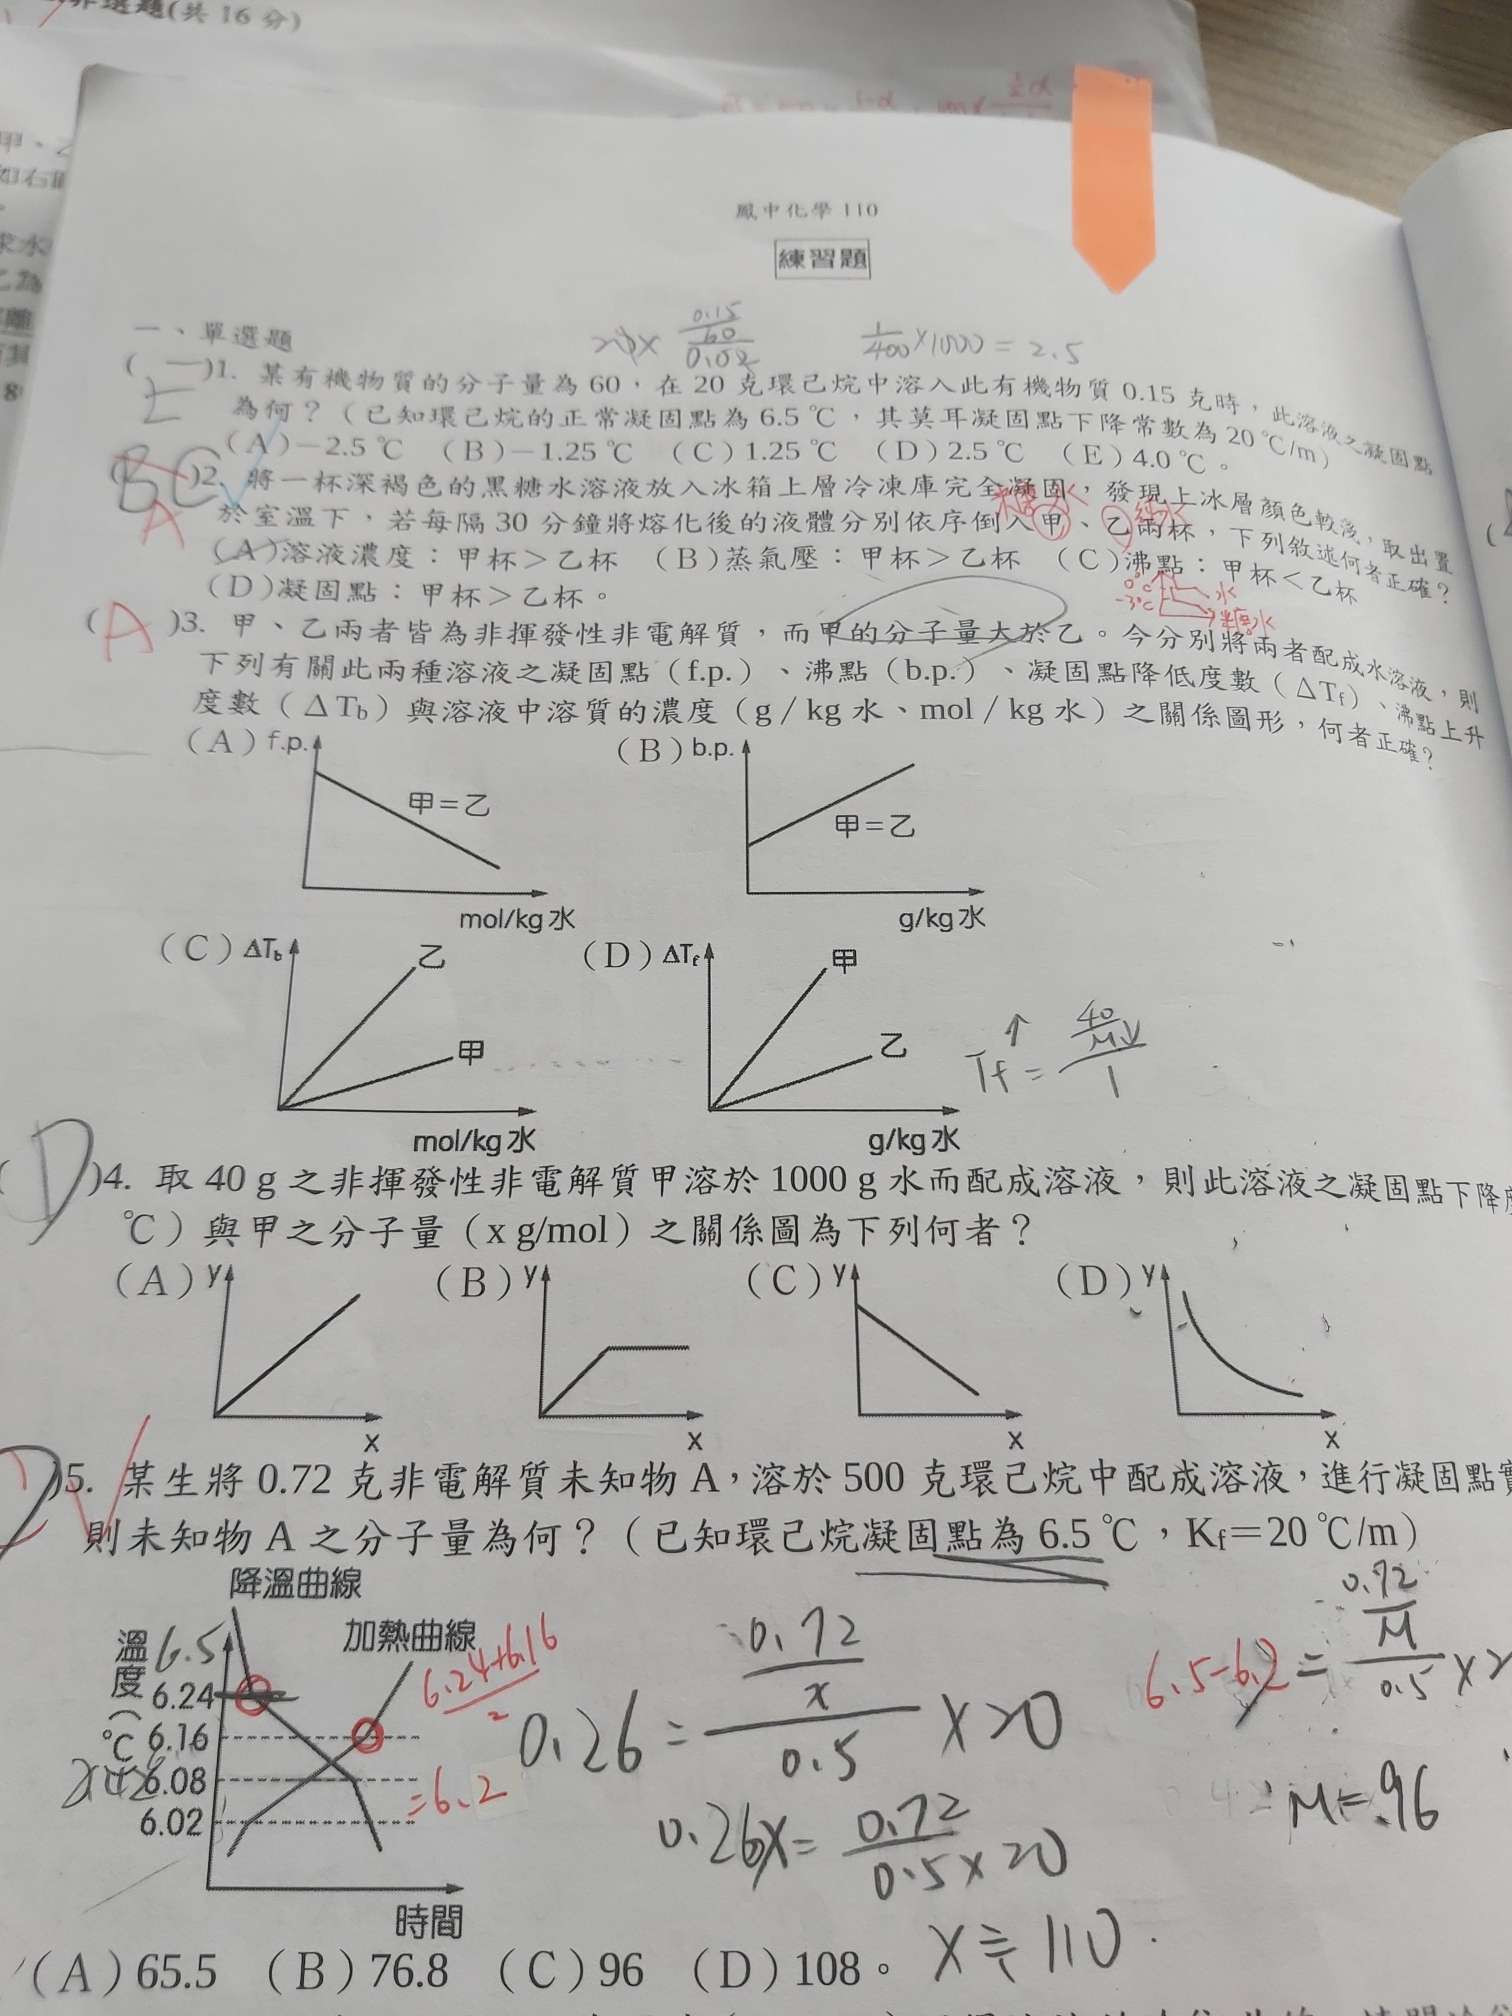 非選題(共 16 分)
鳳中化學 110
練習題
一、單選題
0.15
60
0.02
1/400 × 1000 = 2.5
( E )1. 某有機物質的分子量為 60，在 20 克環己烷中溶入此有機物質 0.15 克時，此溶液之凝固點
為何？（已知環己烷的正常凝固點為 6.5 ℃，其莫耳凝固點下降常數為 20 ℃/m）
(A)－2.5 ℃ (B)－1.25 ℃ (C)1.25 ℃ (D)2.5 ℃ (E)4.0 ℃。
( )2. 將一杯深褐色的黑糖水溶液放入冰箱上層冷凍庫完全凝固，發現上冰層顏色較淺，取出置
A
於室溫下，若每隔 30 分鐘將熔化後的液體分別依序倒入甲、乙兩杯，下列敘述何者正確？
(A)溶液濃度：甲杯＞乙杯 (B)蒸氣壓：甲杯＞乙杯 (C)沸點：甲杯＜乙杯
(D)凝固點：甲杯＞乙杯。
0℃ 水
-3℃ 糖水
( A )3. 甲、乙兩者皆為非揮發性非電解質，而甲的分子量大於乙。今分別將兩者配成水溶液，則
下列有關此兩種溶液之凝固點（f.p.）、沸點（b.p.）、凝固點降低度數（ΔTf）、沸點上升
度數（ΔTb）與溶液中溶質的濃度（g／kg 水、mol／kg 水）之關係圖形，何者正確？
(A) f.p. 甲＝乙 mol/kg 水
(B) b.p. 甲＝乙 g/kg 水
(C) ΔTb 乙 甲 mol/kg 水
(D) ΔTf 甲 乙 g/kg 水
Tf↑ = 40/M↓ / 1
( D )4. 取 40 g 之非揮發性非電解質甲溶於 1000 g 水而配成溶液，則此溶液之凝固點下降
℃）與甲之分子量（x g/mol）之關係圖為下列何者？
(A) y x
(B) y x
(C) y x
(D) y x
)5. 某生將 0.72 克非電解質未知物 A，溶於 500 克環己烷中配成溶液，進行凝固點
則未知物 A 之分子量為何？（已知環己烷凝固點為 6.5 ℃，Kf＝20 ℃/m）
降溫曲線
加熱曲線
溫度(℃
6.5
6.24
6.16
6.08
6.02
時間
6.24+6.16
2
=6.2
0.26 = 0.72/x / 0.5 ×20
0.26x = 0.72 / 0.5 × 20
x ≒ 110
6.5-6.2 = 0.72/M / 0.5 ×2
M = 96
(A)65.5 (B)76.8 (C)96 (D)108。